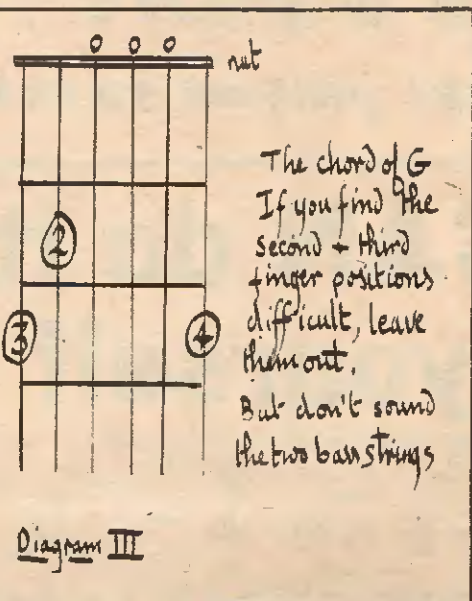 o o o
nut
The chord of G
If you find the
second + third
finger positions
difficult, leave
them out.
But don't sound
the two bass strings
2
3 4
Diagram III